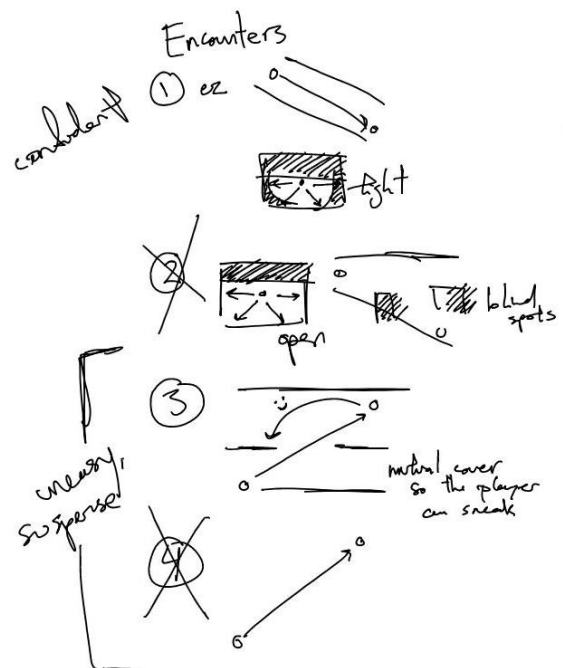 Encounters
confident
1 ez
tight
2
open
blind
spots
3
uneasy,
suspense
mutual cover
so the player
can sneak
4